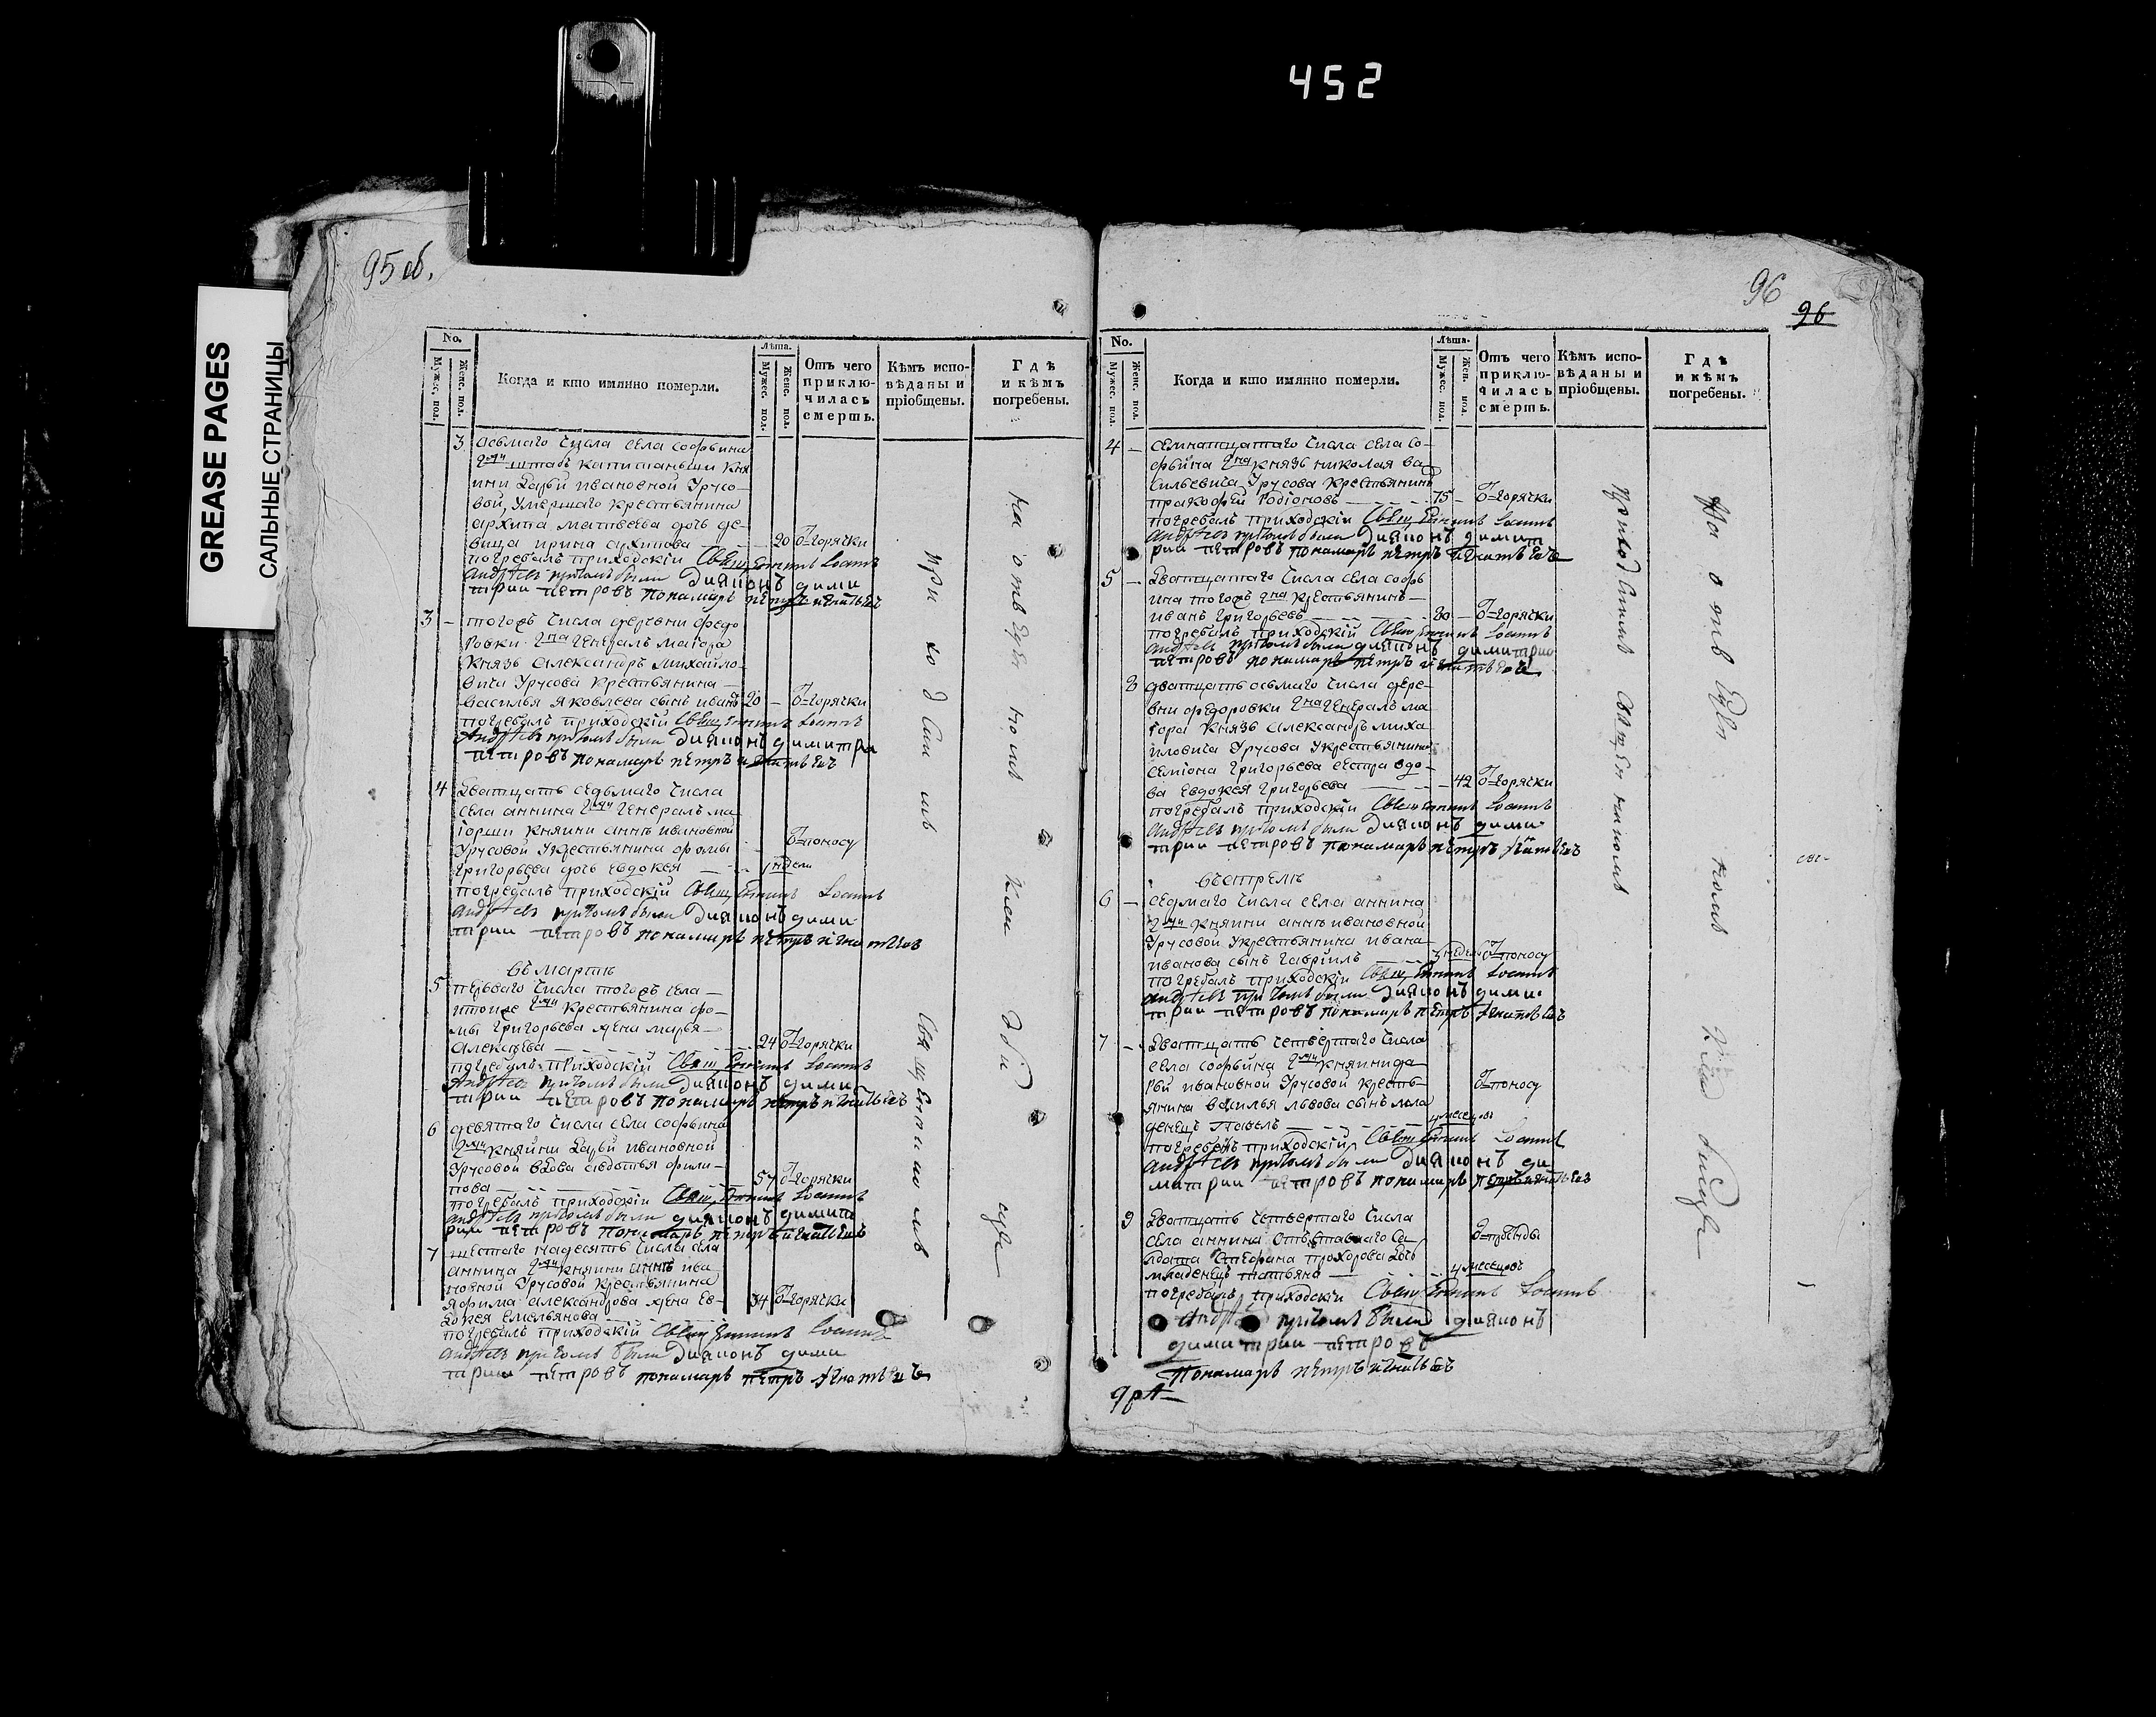 452
95 об.
GREASE PAGES
САЛЬНЫЕ СТРАНИЦЫ
No.
Мужес. пол.
Женс. пол.
Когда и кто имянно померли.
Лѣта.
Мужес. пол.
Женс. пол.
Отъ чего приклю-
чилась смерть.
Кѣмъ испо-
вѣданы и
пріобщены.
Гдѣ
и кѣмъ
погребены.
3 осьмаго числа села софьина
штабъ капитаньши кня
ини Дарьи ивановной Урусо-
вой, умершаго крестьянина
архипа матвеева дочь де-
вица ирина архипова 20 горячки
погребалъ приходскій Священникъ Іоаннъ
Андреевъ притомъ были диаконъ дими
трии петровъ понамарь петръ игнатьевъ
3 - тогожъ числа деревни федо
ровки генералъ маіора
князь александръ михайло-
вича Урусова крестьянина
василья яковлева сынъ иванъ 20 - горячки
погребалъ приходскій Священникъ Іоаннъ
Андреевъ притомъ были диаконъ димитри
петровъ понамарь петръ игнатьевъ
4 Дватцать седьмаго числа
села аннина генералъ ма
іорши княини анны ивановной
Урусовой крестьянина фомы поносу
григорьева дочь евдокея недели
погребалъ приходскій Священникъ Іоаннъ
Андреевъ притомъ были диаконъ дими
трии петровъ понамарь петръ игнатьевъ
въ марте
5 перваго числа тогожъ села
крестьянина фо-
мы григорьева жена марья
алексеева 24 горячки
погребалъ приходскій Священникъ Іоаннъ
Андреевъ притомъ были диаконъ дими
трии петровъ понамарь петръ игнатьевъ
6 девятаго числа села софьина
княини Дарьи ивановной
Урусовой вдова авдотья фили-
пова 57 горячки
погребалъ приходскій Священникъ Іоаннъ
Андреевъ притомъ были диаконъ димит
рии петровъ понамарь петръ игнатьевъ
7 шестаго надесять числа села
аннина княини анны ива
новной Урусовой крестьянина
яфима александрова жена ев- 34 горячки
докея емельянова
погребалъ приходскій Священникъ Іоаннъ
Андреевъ притомъ были диаконъ дими
трии петровъ понамарь петръ игнатьевъ
приходскимъ
Священникомъ
на отведенномъ
96
96
No.
Мужес. пол.
Женс. пол.
Когда и кто имянно померли.
Лѣта.
Мужес. пол.
Жен. пол.
Отъ чего
приклю-
чилась
смерть.
Кѣмъ испо-
вѣданы и
пріобщены.
Гдѣ
и кѣмъ
погребены.
4 - семнатцатаго числа села со-
фьина князь николая ва
сильевича Урусова крестьянинъ
пракофей родіоновъ 75 - горячки
погребалъ приходскій Священникъ Іоаннъ
Андреевъ притомъ были диаконъ димит
рии петровъ понамарь петръ игнатьевъ
5 - Дватцатаго числа села софь
ина тогожъ крестьянинъ
иванъ григорьевъ 20 - горячки
погребалъ приходскій Священникъ Іоаннъ
Андреевъ притомъ были диаконъ димитрии
петровъ понамарь петръ игнатьевъ
8 дватцать осьмаго числа дере-
вни федоровки генералъ ма
іора князь александръ миха
иловича Урусова крестьянина
семіона григорьева сестра вдо-
ва евдокея григорьева 42 горячки
погребалъ приходскій Священникъ Іоаннъ
Андреевъ притомъ были диаконъ дими
трии петровъ понамарь петръ игнатьевъ
въ апреле
6 - седмаго числа села аннина
княини анны ивановной
Урусовой крестьянина ивана
иванова сынъ гавріилъ недель поносу
погребалъ приходскіи Священникъ Іоаннъ
Андреевъ притомъ были диаконъ дими
трии петровъ понамарь петръ игнатьевъ
7 - Дватцать четвертаго числа
села софьина княини да
рьи ивановной Урусовой кресть- поносу
янина василья львова сынъ мла
денецъ павелъ месецовъ
погребенъ приходскій Священникъ Іоаннъ
Андреевъ притомъ были диаконъ ди
митрии петровъ понамарь петръ игнатьевъ
9 Дватцать четвертаго числа
села аннина отъставнаго са
лдата стефана прохорова дочь
младенецъ татьяна 4 месецовъ
погребалъ приходскіи Священникъ Іоаннъ
Андреевъ притомъ были диаконъ
димитрии петровъ
понамарь петръ игнатьевъ
приходскимъ Священникомъ
На отведенномъ